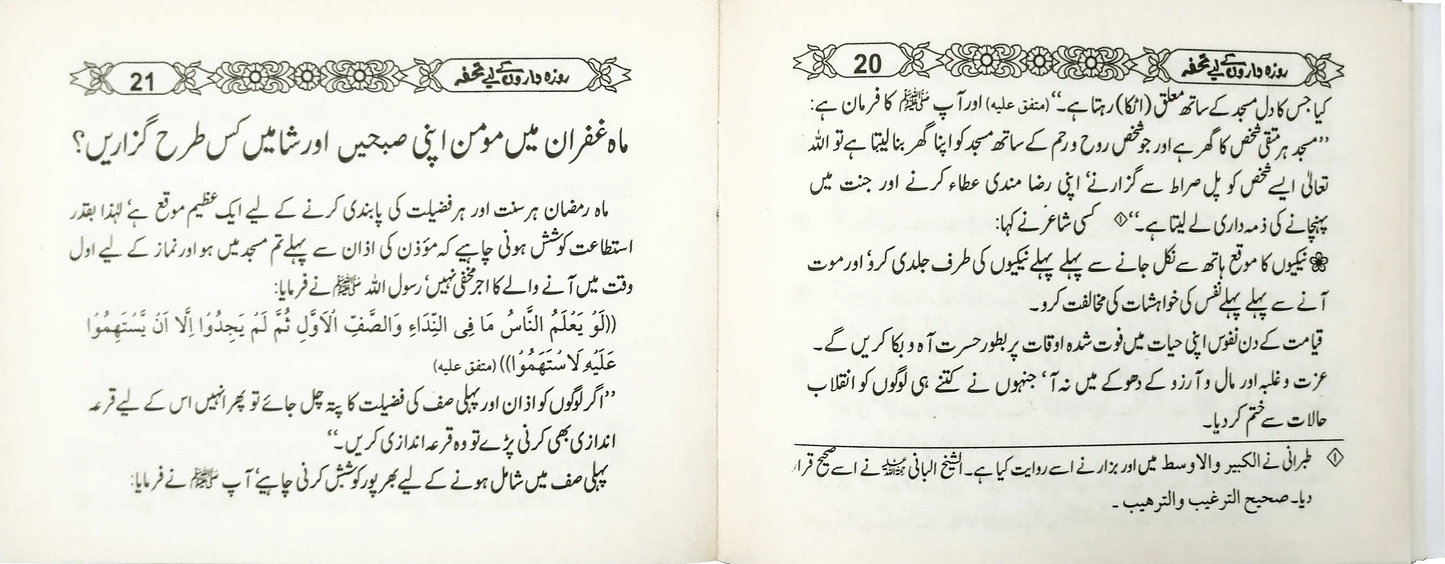 روزہ داروں کے لیے تحفہ 20
کیا جس کا دل مسجد کے ساتھ معلق (اٹکا) رہتا ہے۔‘‘ (متفق علیہ) اور آپ ﷺ کا فرمان ہے:
’’مسجد ہر متقی شخص کا گھر ہے اور جو شخص روح و رحم کے ساتھ مسجد کو اپنا گھر بنا لیتا ہے تو اللہ
تعالیٰ ایسے شخص کو پل صراط سے گزارنے‘ اپنی رضا مندی عطاء کرنے اور جنت میں
پہنچانے کی ذمہ داری لے لیتا ہے۔‘‘ ① کسی شاعر نے کہا:
❀ نیکیوں کا موقع ہاتھ سے نکل جانے سے پہلے پہلے نیکیوں کی طرف جلدی کرو‘ اور موت
آنے سے پہلے پہلے نفس کی خواہشات کی مخالفت کرو۔
قیامت کے دن نفوس اپنی حیات میں فوت شدہ اوقات پر بطور حسرت آہ و بکا کریں گے۔
عزت و غلبہ اور مال و آرزو کے دھوکے میں نہ آ‘ جنہوں نے کتنے ہی لوگوں کو انقلاب
حالات سے ختم کر دیا۔
① طبرانی نے الکبیر والاوسط میں اور بزار نے اسے روایت کیا ہے۔ الشیخ البانی رحمہ اللہ نے اسے صحیح قرار
دیا۔ صحیح الترغیب والترھیب۔
روزہ داروں کے لیے تحفہ 21
ماہ غفران میں مومن اپنی صبحیں اور شامیں کس طرح گزاریں؟
ماہ رمضان ہر سنت اور ہر فضیلت کی پابندی کرنے کے لیے ایک عظیم موقع ہے‘ لہٰذا بقدر
استطاعت کوشش ہونی چاہیے کہ مؤذن کی اذان سے پہلے تم مسجد میں ہو اور نماز کے لیے اول
وقت میں آنے والے کا اجر مخفی نہیں‘ رسول اللہ ﷺ نے فرمایا:
((لَوْ يَعْلَمُ النَّاسُ مَا فِی النِّدَاءِ وَالصَّفِّ الْاَوَّلِ ثُمَّ لَمْ يَجِدُوْا اِلَّا اَنْ يَّسْتَهِمُوْا
عَلَيْهِ لَاسْتَهَمُوْا)) (متفق علیه)
’’اگر لوگوں کو اذان اور پہلی صف کی فضیلت کا پتہ چل جائے تو پھر انہیں اس کے لیے قرعہ
اندازی بھی کرنی پڑے تو وہ قرعہ اندازی کریں۔‘‘
پہلی صف میں شامل ہونے کے لیے بھرپور کوشش کرنی چاہیے‘ آپ ﷺ نے فرمایا: